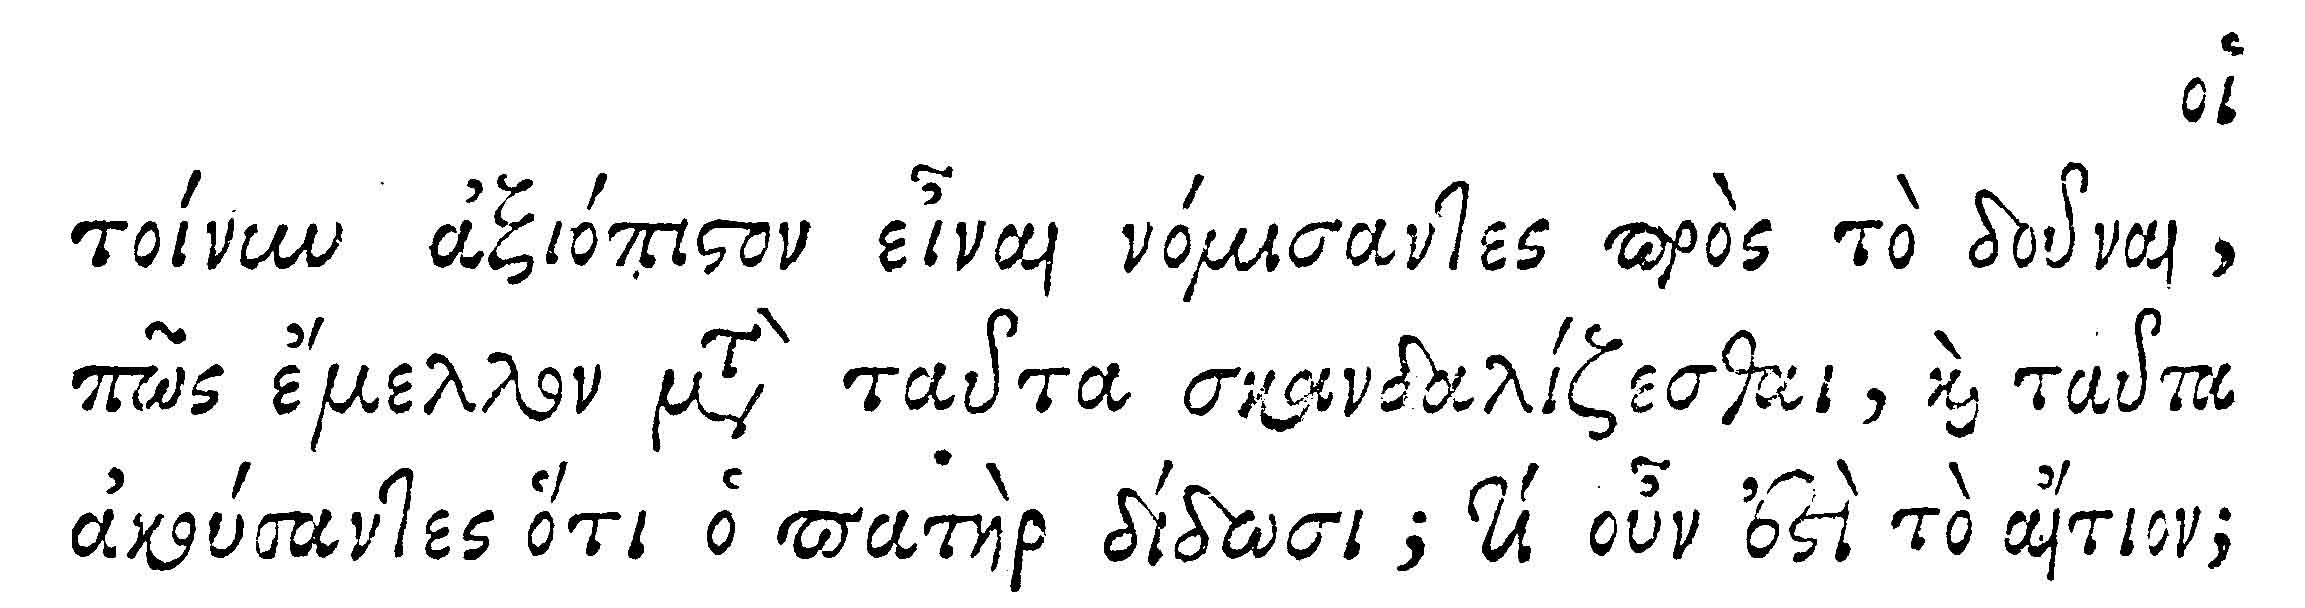 οἱ
τοίνυν ἀξιόπιστον εἶναι νόμισαντες πρὸς τὸ δοῦναι,
πῶς ἔμελλον μετὰ ταῦτα σκανδαλίζεσθαι, καὶ ταῦτα
ἀκούσαντες ὅτι ὁ πατὴρ δίδωσι; τί οὖν ἐστὶ τὸ αἴτιον;